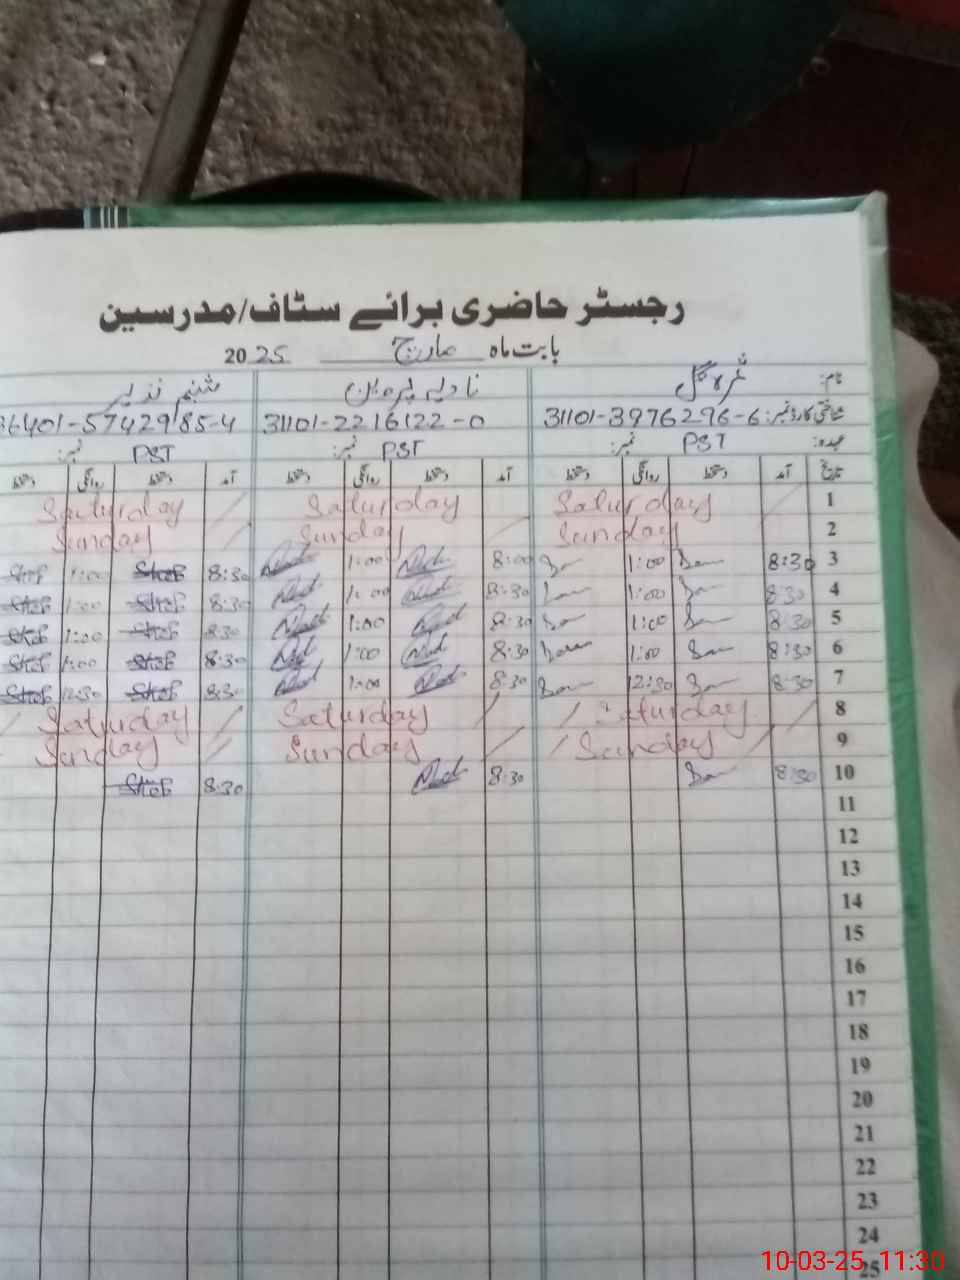 رجسٹر حاضری برائے سٹاف/مدرسین
بابت ماہ مارچ 2025
نام: ثمر گل نادیہ پروین شبنم نذیر
شناختی کارڈ نمبر: 31101-3976296-6 31101-2216122-0 36401-5742985-4
عہدہ: PST نمبر: PST نمبر: PST نمبر:
تاریخ آمد دستخط روانگی دستخط آمد دستخط روانگی دستخط آمد دستخط روانگی دستخط
1 Saturday Saturday Saturday
2 Sunday Sunday Sunday
3 8:30 1:00 8:00 1:00 8:30 1:00
4 8:30 1:00 8:30 1:00 8:30 1:00
5 8:30 1:00 8:30 1:00 8:30 1:00
6 8:30 1:00 8:30 1:00 8:30 1:00
7 8:30 12:30 8:30 1:00 8:30 12:30
8 Saturday Saturday Saturday
9 Sunday Sunday Sunday
10 8:30 8:30 8:30
11
12
13
14
15
16
17
18
19
20
21
22
23
24
25
10-03-25, 11:30